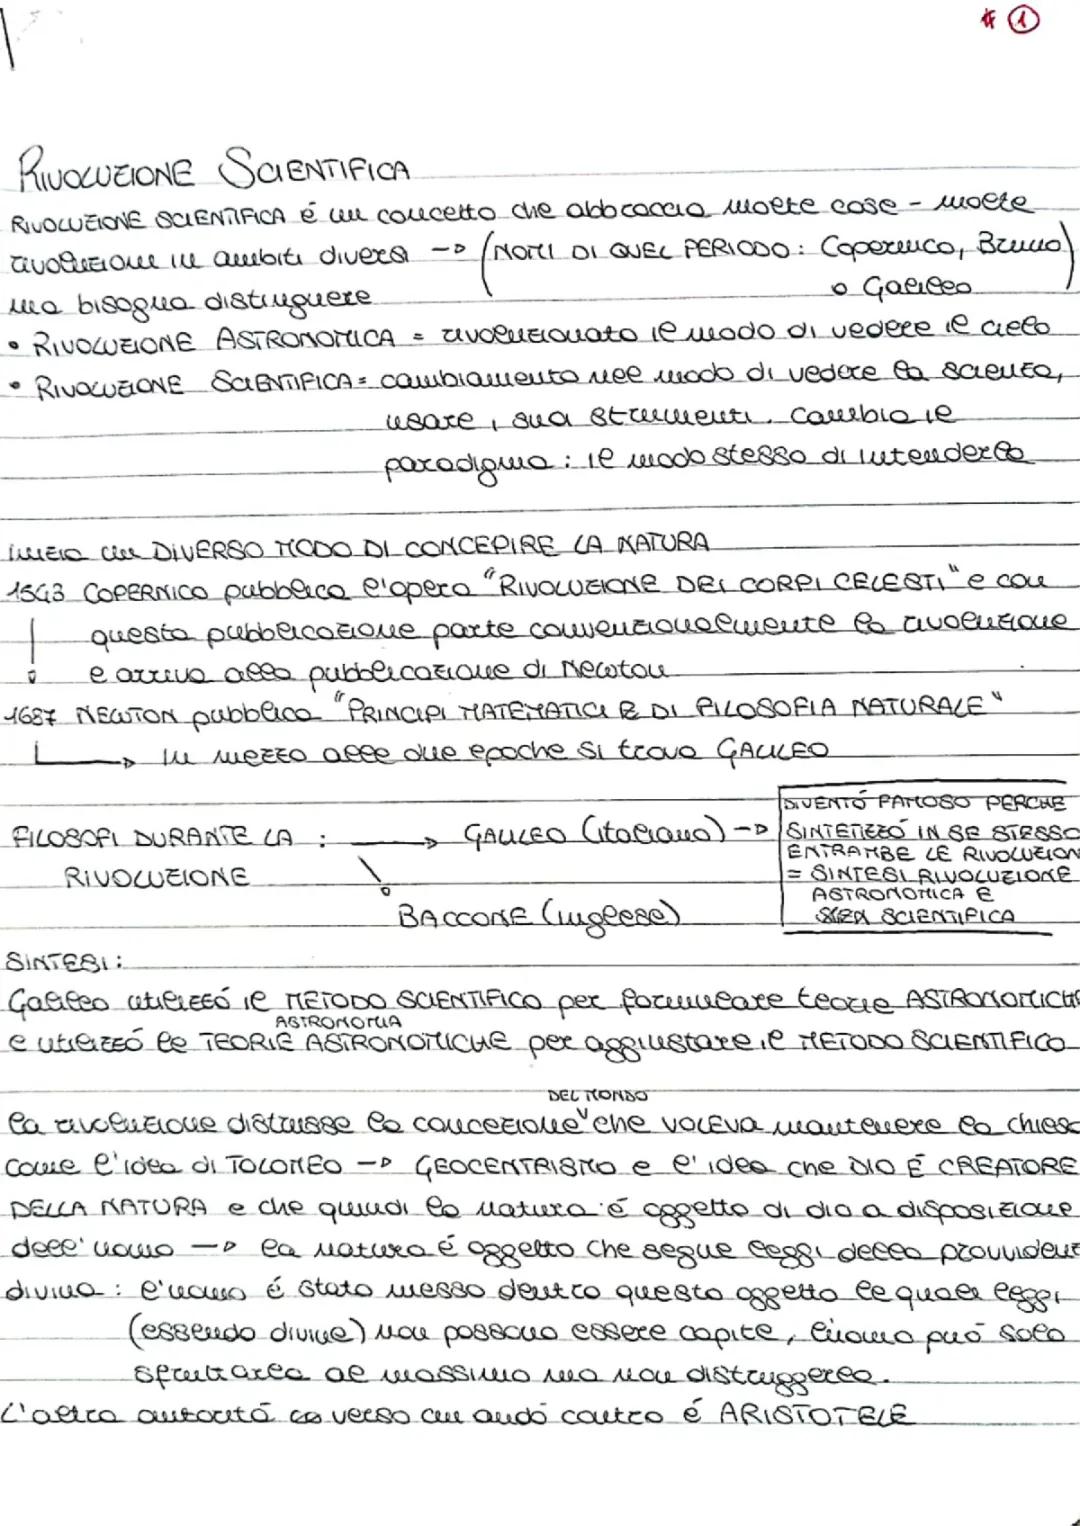 * 1
RIVOLUZIONE SCIENTIFICA
RIVOLUZIONE SCIENTIFICA é un concetto che abbraccia molte cose - molte
rivoluzioni in ambiti diversi -> (NOMI DI QUEL PERIODO: Copernico, Bruno
ma bisogna distinguere o Galileo)
• RIVOLUZIONE ASTRONOMICA = rivoluzionato il modo di vedere il cielo
• RIVOLUZIONE SCIENTIFICA = cambiamento nel modo di vedere la scienza,
usare, suoi strumenti. Cambia il
paradigma: il modo stesso di intenderla
inizia un DIVERSO MODO DI CONCEPIRE LA NATURA
1543 COPERNICO pubblica l'opera "RIVOLUZIONE DEI CORPI CELESTI" e con
questa pubblicazione parte convenzionalmente la rivoluzione
e arriva alla pubblicazione di Newton
1687 NEWTON pubblica "PRINCIPI MATEMATICI E DI FILOSOFIA NATURALE"
-> In mezzo alle due epoche si trova GALILEO
FILOSOFI DURANTE LA : -> GALILEO (italiano) ->
RIVOLUZIONE
-> BACCONE (inglese)
DIVENTÓ FAMOSO PERCHE
SINTETIZZÓ IN SE STESSO
ENTRAMBE LE RIVOLUZION
= SINTESI RIVOLUZIONE
ASTRONOMICA E
SCIENTIFICA
SINTESI:
Galileo utilizzó il METODO SCIENTIFICO per formulare teorie ASTRONOMICHE
ASTRONOMIA
e utilizzó le TEORIE ASTRONOMICHE per aggiustare il METODO SCIENTIFICO
DEL MONDO
la rivoluzione distrusse la concezione che voleva mantenere la chiesa
come l'idea di TOLOMEO -> GEOCENTRISMO e l'idea che DIO É CREATORE
DELLA NATURA e che quindi la natura é oggetto di dio a disposizione
dell'uomo -> la natura é oggetto che segue leggi della provvident
divina: l'uomo é stato messo dentro questo oggetto le quali leggi
(essendo divine) non possono essere capite, l'uomo puó solo
sfruttarla al massimo ma non distruggerla.
L'altra autoritá verso cui andó contro é ARISTOTELE